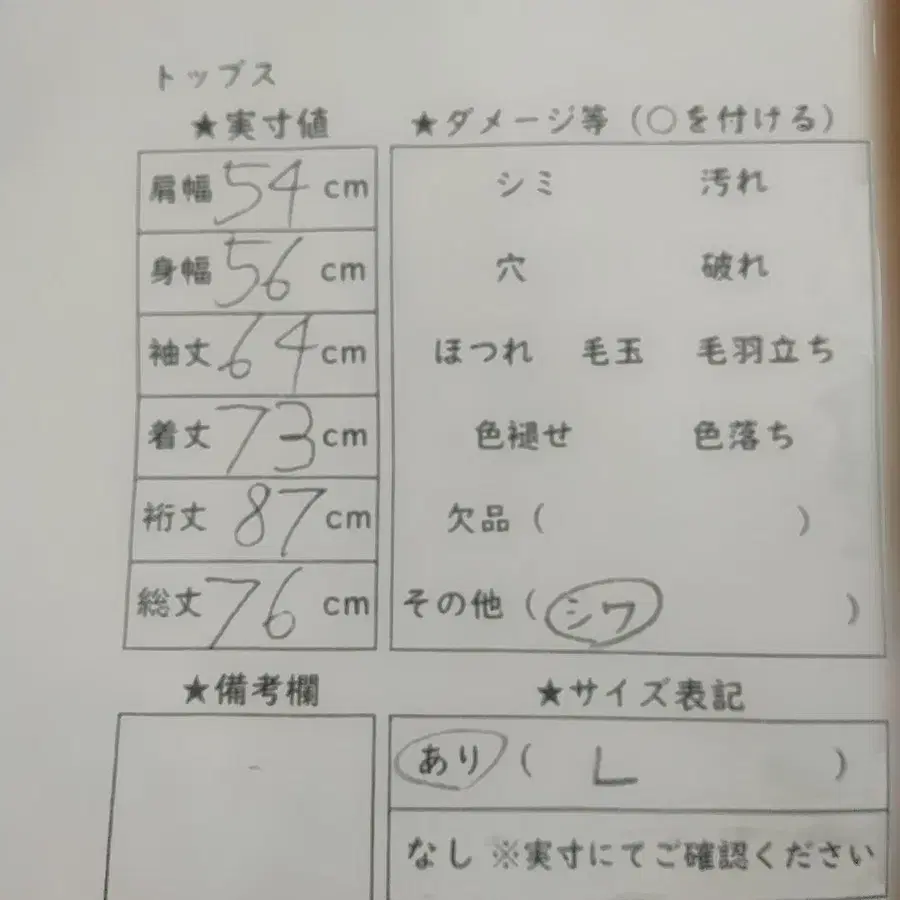 トップス
★実寸値
肩幅 54 cm
身幅 56 cm
袖丈 64 cm
着丈 73 cm
裄丈 87 cm
総丈 76 cm
★ダメージ等（○を付ける）
シミ 汚れ
穴 破れ
ほつれ 毛玉 毛羽立ち
色褪せ 色落ち
欠品（ ）
その他（ シワ ）
★備考欄
★サイズ表記
あり（ L ）
なし ※実寸にてご確認ください